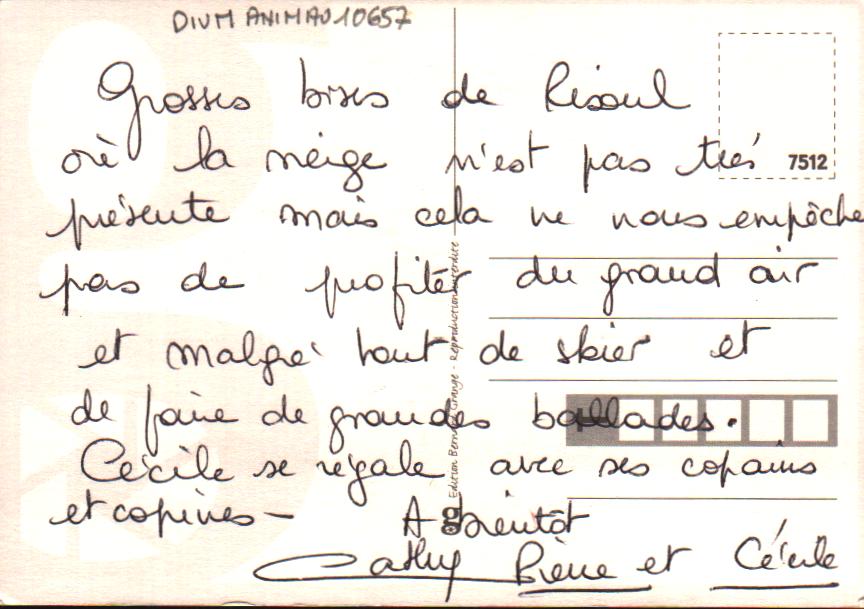 DIVM ANIMAU 10657
Grosses bises de Risoul
où la neige n'est pas très
7512
présente mais cela ne nous empêche
pas de profiter du grand air
et malgré tout de skier et
de faire de grandes ballades.
Cécile se régale avec ses copains
et copines -
A bientôt
Cathy Pierre et Cécile
Edition Bernard Grange - Reproduction interdite